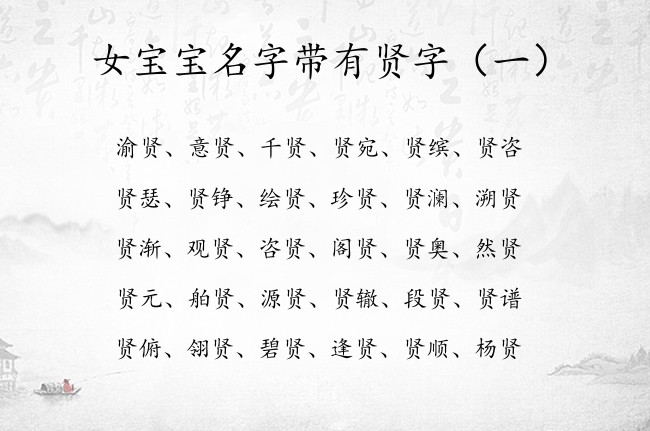 女宝宝名字带有贤字（一）
渝贤、意贤、千贤、贤宛、贤缤、贤咨
贤瑟、贤铮、绘贤、珍贤、贤澜、溯贤
贤渐、观贤、咨贤、阁贤、贤奥、然贤
贤元、舶贤、源贤、贤辙、段贤、贤谱
贤俯、翎贤、碧贤、逢贤、贤顺、杨贤